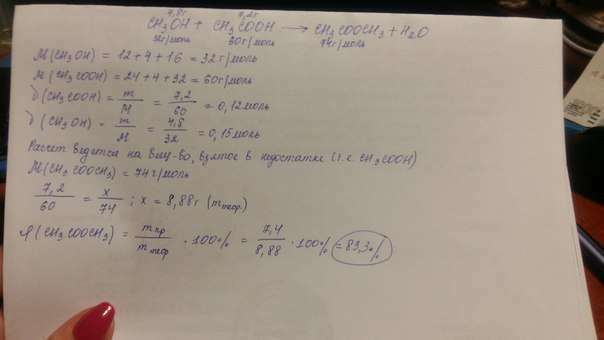 4,8г 7,2г
CH₃OH + CH₃COOH ⟶ CH₃COOCH₃ + H₂O
32г/моль 60г/моль 74г/моль
M(CH₃OH) = 12 + 4 + 16 = 32 г/моль
M(CH₃COOH) = 24 + 4 + 32 = 60 г/моль
ν(CH₃COOH) = m/M = 7,2/60 = 0,12 моль
ν(CH₃OH) = m/M = 4,8/32 = 0,15 моль
Расчет ведется на вещ-во, взятое в недостатке (т.е. CH₃COOH)
M(CH₃COOCH₃) = 74 г/моль
7,2/60 = x/74 ; x = 8,88 г (mтеор.)
η(CH₃COOCH₃) = mпр/mтеор · 100% = 7,4/8,88 · 100% = 83,3%